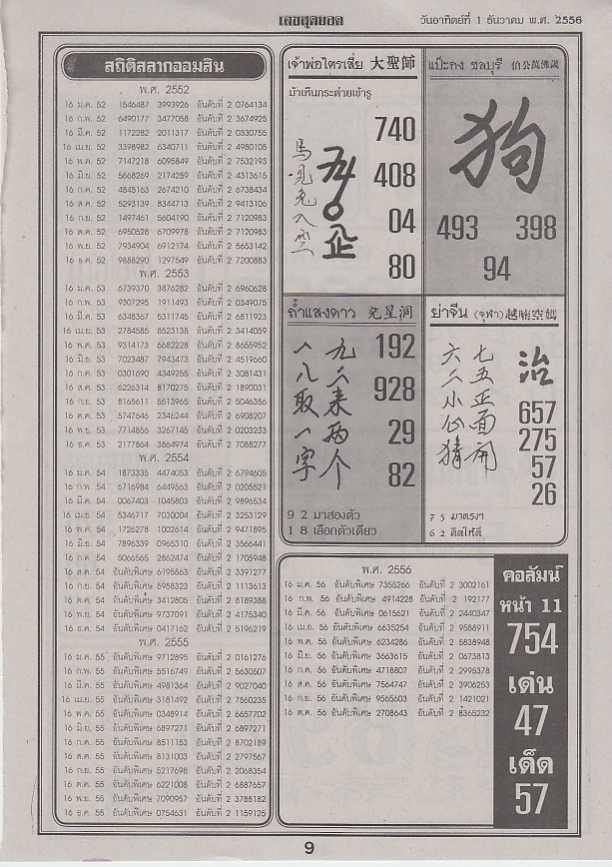 เลขสุดยอด
วันอาทิตย์ที่ 1 ธันวาคม พ.ศ. 2556
สถิติสลากออมสิน
พ.ศ. 2552
16 ม.ค. 52 1546487 3993926 อันดับที่ 2 0764134
16 ก.พ. 52 6490177 3477058 อันดับที่ 2 3674925
16 มี.ค. 52 1172282 2011317 อันดับที่ 2 0330755
16 เม.ย. 52 3398982 6340711 อันดับที่ 2 4980105
16 พ.ค. 52 7147218 6095849 อันดับที่ 2 7532193
16 มิ.ย. 52 5668269 2174289 อันดับที่ 2 4313615
16 ก.ค. 52 4845163 2674210 อันดับที่ 2 6738434
16 ส.ค. 52 5293139 8344713 อันดับที่ 2 9413106
16 ก.ย. 52 1497461 5604190 อันดับที่ 2 7120983
16 ต.ค. 52 6950528 6709978 อันดับที่ 2 7120983
16 พ.ย. 52 7934904 6912174 อันดับที่ 2 5653142
16 ธ.ค. 52 9888290 1297549 อันดับที่ 2 7200883
พ.ศ. 2553
16 ม.ค. 53 6739370 3876282 อันดับที่ 2 6960628
16 ก.พ. 53 9307295 1911493 อันดับที่ 2 0349075
16 มี.ค. 53 6348367 5311745 อันดับที่ 2 6811923
16 เม.ย. 53 2784585 8523138 อันดับที่ 2 3414059
16 พ.ค. 53 9314173 6682228 อันดับที่ 2 8655952
16 มิ.ย. 53 7023487 7943473 อันดับที่ 2 4519660
16 ก.ค. 53 0301690 4349255 อันดับที่ 2 3081431
16 ส.ค. 53 6226314 8170275 อันดับที่ 2 1890031
16 ก.ย. 53 8165611 5513965 อันดับที่ 2 5046356
16 ต.ค. 53 5747646 2346244 อันดับที่ 2 6908207
16 พ.ย. 53 7714856 3267145 อันดับที่ 2 0203233
16 ธ.ค. 53 2177864 3664974 อันดับที่ 2 7088277
พ.ศ. 2554
16 ม.ค. 54 1873335 4474053 อันดับที่ 2 6794605
16 ก.พ. 54 6716984 6449563 อันดับที่ 2 0205521
16 มี.ค. 54 0067403 1045803 อันดับที่ 2 9896534
16 เม.ย. 54 5346717 7030004 อันดับที่ 2 3253129
16 พ.ค. 54 1726278 1002614 อันดับที่ 2 9471895
16 มิ.ย. 54 7896339 0965310 อันดับที่ 2 3566441
16 ก.ค. 54 6066565 2662474 อันดับที่ 2 1705948
16 ส.ค. 54 อันดับพิเศษ 6195663 อันดับที่ 2 3391277
16 ก.ย. 54 อันดับพิเศษ 6958323 อันดับที่ 2 1113613
16 ต.ค. 54 อันดับพิเศษ 3412805 อันดับที่ 2 8189388
16 พ.ย. 54 อันดับพิเศษ 9737091 อันดับที่ 2 4175340
16 ธ.ค. 54 อันดับพิเศษ 0417162 อันดับที่ 2 5196219
พ.ศ. 2555
16 ม.ค. 55 อันดับพิเศษ 9712695 อันดับที่ 2 0161276
16 ก.พ. 55 อันดับพิเศษ 5516749 อันดับที่ 2 5630507
16 มี.ค. 55 อันดับพิเศษ 4981364 อันดับที่ 2 9027040
16 เม.ย. 55 อันดับพิเศษ 3181492 อันดับที่ 2 7560235
16 พ.ค. 55 อันดับพิเศษ 0348914 อันดับที่ 2 6657702
16 มิ.ย. 55 อันดับพิเศษ 6897271 อันดับที่ 2 6897271
16 ก.ค. 55 อันดับพิเศษ 8511153 อันดับที่ 2 8702189
16 ส.ค. 55 อันดับพิเศษ 8131003 อันดับที่ 2 2797567
16 ก.ย. 55 อันดับพิเศษ 5217698 อันดับที่ 2 2068354
16 ต.ค. 55 อันดับพิเศษ 6221008 อันดับที่ 2 6887657
16 พ.ย. 55 อันดับพิเศษ 7090957 อันดับที่ 2 3785182
16 ธ.ค. 55 อันดับพิเศษ 0754631 อันดับที่ 2 1159125
เจ้าพ่อไตรเสี่ย 大聖師
ม้าเห็นกระต่ายเข้ารู
740
408
04
80
แป๊ะกง ชลบุรี
狗
493 398
94
ถ้ำแสงดาว 光星洞
一九
八二
取来
一两
字个
192
928
29
82
9 2 มาสองตัว
1 8 เลือกตัวเดียว
ย่าจีน (จุฬา)
六七
二五
小正
心面
猜开
治
657
275
57
26
7 5 มาตรงๆ
6 2 คิดให้ดี
พ.ศ. 2556
16 ม.ค. 56 อันดับพิเศษ 7355266 อันดับที่ 2 3002161
16 ก.พ. 56 อันดับพิเศษ 4914228 อันดับที่ 2 192177
16 มี.ค. 56 อันดับพิเศษ 0615621 อันดับที่ 2 2440347
16 เม.ย. 56 อันดับพิเศษ 6635254 อันดับที่ 2 9586911
16 พ.ค. 56 อันดับพิเศษ 6234286 อันดับที่ 2 5838948
16 มิ.ย. 56 อันดับพิเศษ 3663615 อันดับที่ 2 0673813
16 ก.ค. 56 อันดับพิเศษ 4718807 อันดับที่ 2 2995378
16 ส.ค. 56 อันดับพิเศษ 7564747 อันดับที่ 2 3906253
16 ก.ย. 56 อันดับพิเศษ 9565603 อันดับที่ 2 1421021
16 ต.ค. 56 อันดับพิเศษ 2708643 อันดับที่ 2 8365232
คอลัมน์
หน้า 11
754
เด่น
47
เด็ด
57
9